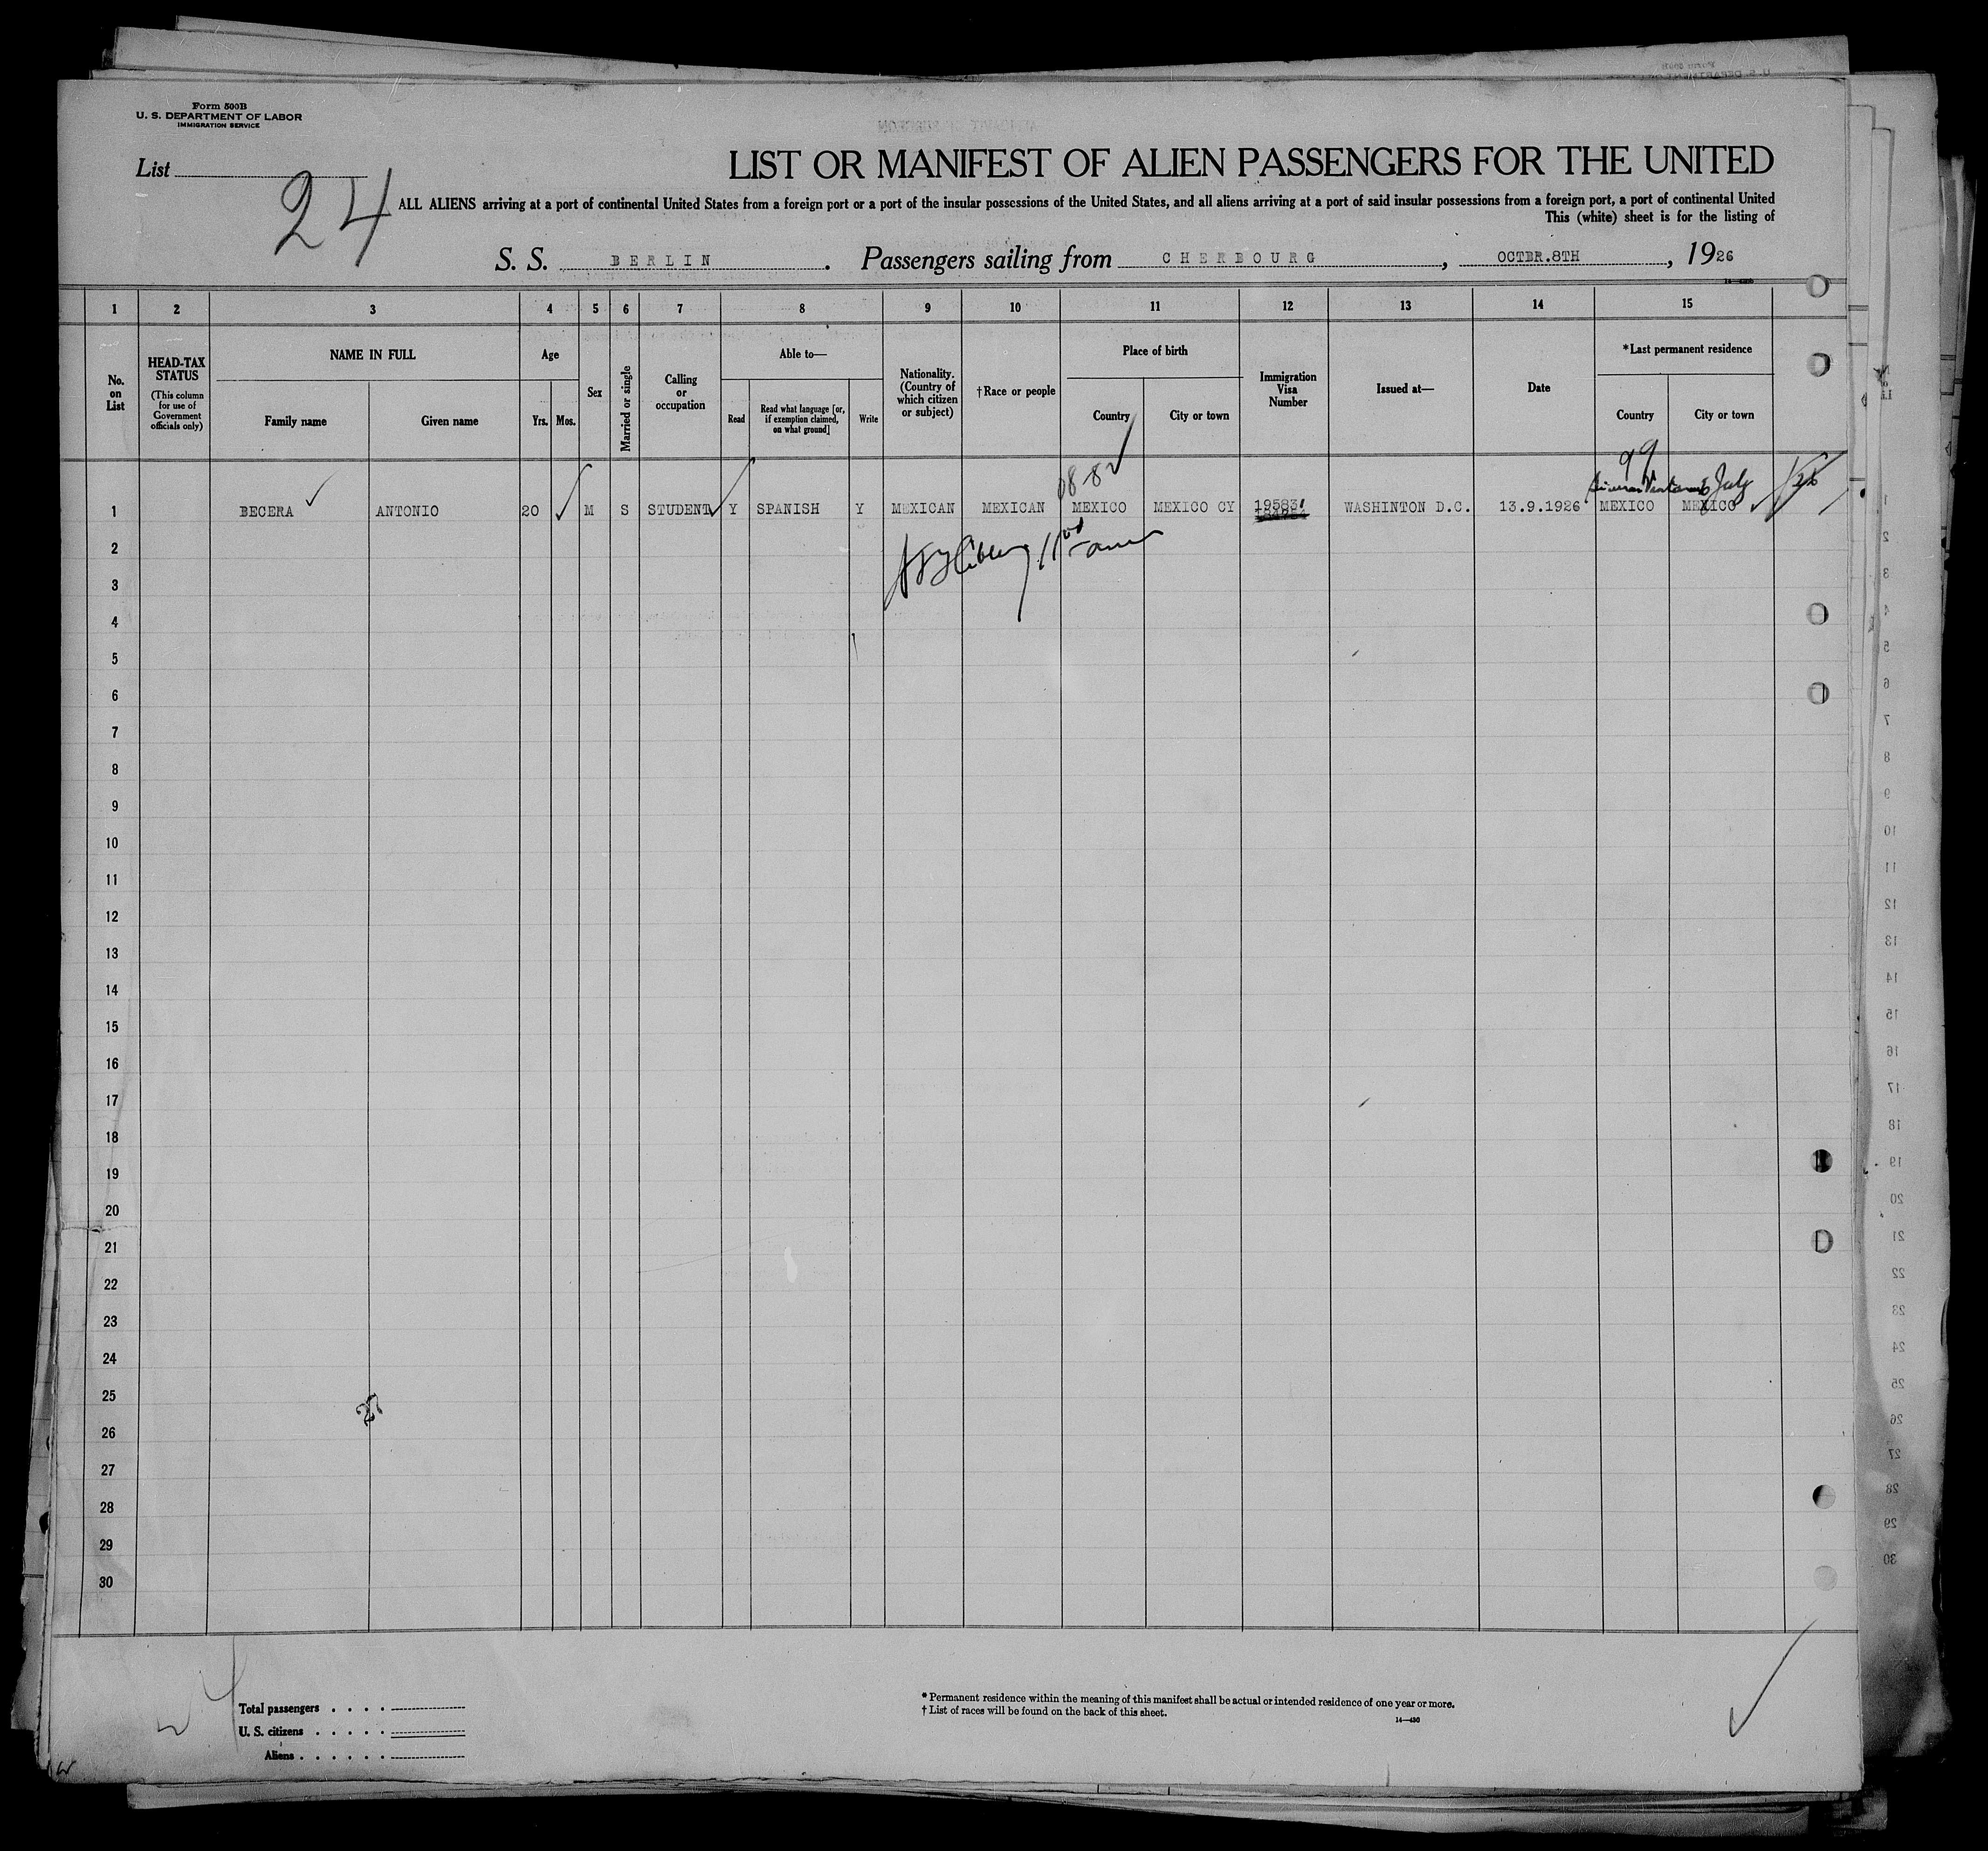 Form 500B
U. S. DEPARTMENT OF LABOR
IMMIGRATION SERVICE
List
24
LIST OR MANIFEST OF ALIEN PASSENGERS FOR THE UNITED
ALL ALIENS arriving at a port of continental United States from a foreign port or a port of the insular possessions of the United States, and all aliens arriving at a port of said insular possessions from a foreign port, a port of continental United
This (white) sheet is for the listing of
S. S. BERLIN. Passengers sailing from CHERBOURG, OCTBR.8TH, 1926
1 2 3 4 5 6 7 8 9 10 11 12 13 14 15
No. on List
HEAD-TAX STATUS
(This column for use of Government officials only)
NAME IN FULL
Family name
Given name
Age
Yrs.
Mos.
Sex
Married or single
Calling or occupation
Able to—
Read
Read what language [or, if exemption claimed, on what ground]
Write
Nationality. (Country of which citizen or subject)
†Race or people
Place of birth
Country
City or town
Immigration Visa Number
Issued at—
Date
*Last permanent residence
Country
City or town
99
1 BECERA ANTONIO 20 M S STUDENT Y SPANISH Y MEXICAN MEXICAN MEXICO MEXICO CY 19583 WASHINTON D.C. 13.9.1926 MEXICO MEXICO
2
3
4
5
6
7
8
9
10
11
12
13
14
15
16
17
18
19
20
21
22
23
24
25
26
27
28
29
30
Total passengers
U. S. citizens
Aliens
* Permanent residence within the meaning of this manifest shall be actual or intended residence of one year or more.
† List of races will be found on the back of this sheet.
14—430